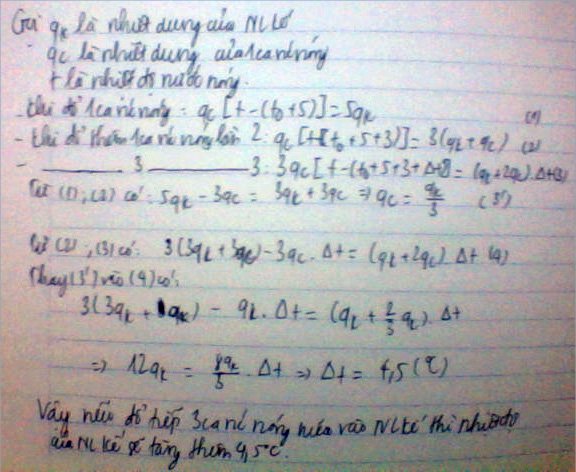 Gọi qk là nhiệt dung của NL kế
qc là nhiệt dung của 1 ca nc nóng
t là nhiệt độ nước nóng.
- Khi đổ 1 ca nc nóng : qc [t - (t0 + 5)] = 5qk (1)
- Khi đổ thêm 1 ca nc nóng lần 2 : qc [t - (t0 + 5 + 3)] = 3(qk + qc) (2)
- ——— 3 ——— 3 : 3qc [t - (t0 + 5 + 3 + Δt)] = (qk + 2qc) . Δt (3)
Từ (1), (2) có : 5qk - 3qc = 3qk + 3qc ⇒ qc = qk/3 (3')
Từ (2), (3) có : 3(3qk + 3qc) - 3qc . Δt = (qk + 2qc) Δt (4)
Thay (3') vào (4) có :
3(3qk + qk) - qk . Δt = (qk + 2/3 qk) . Δt
⇒ 12qk = 8qk/3 . Δt ⇒ Δt = 4,5 (°C)
Vậy nếu đổ tiếp 3 ca nc nóng nữa vào NL kế thì nhiệt độ
của NL kế sẽ tăng thêm 4,5°C.